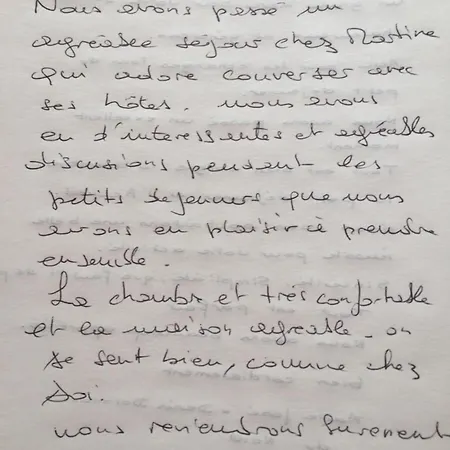 Nous avons passé un
agréable séjour chez Martine
qui adore converser avec
ses hôtes. nous avons
eu d'interessentes et agréables
discusions pendent les
petits dejeuners que nous
avons eu plaisir à prendre
ensemble.
La chambre et très confortable
et la maison agreable. on
se sent bien, comme chez
soi.
nous reviendrons surement